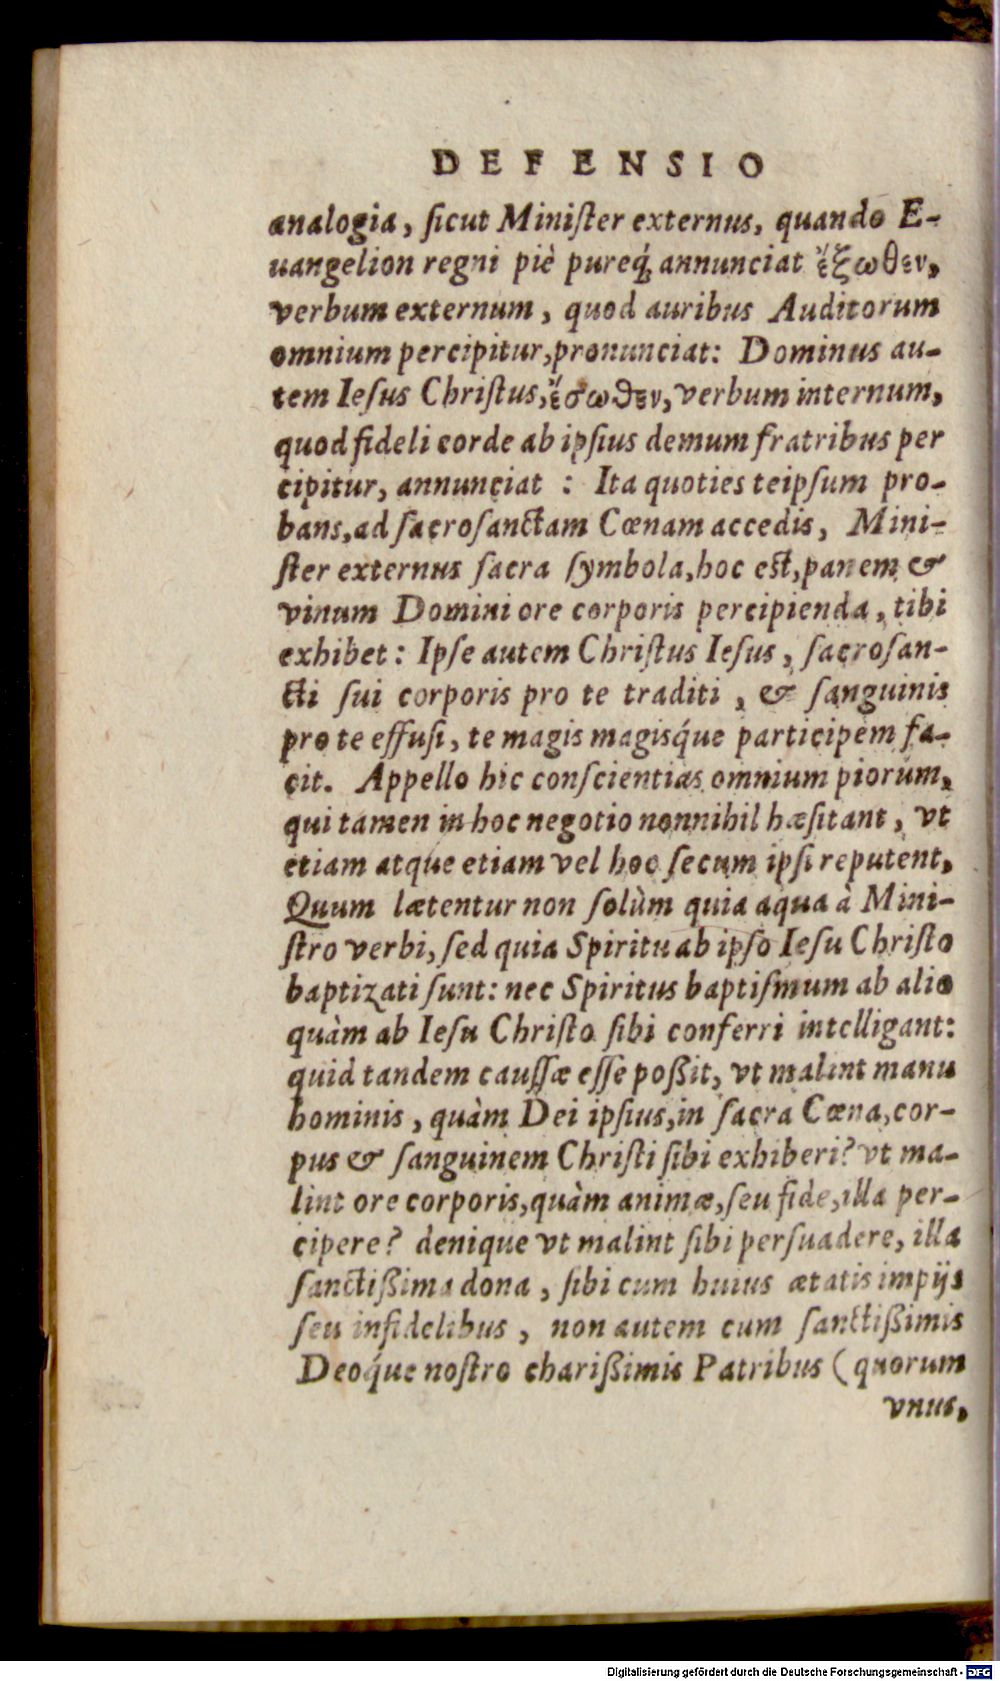 DEFENSIO
analogia, ſicut Miniſter externus, quando E-
uangelion regni piè pureq́; annunciat ἔξωθεν,
verbum externum, quod auribus Auditorum
omnium percipitur, pronunciat: Dominus au-
tem Ieſus Chriſtus, ἔσωθεν, verbum internum,
quod fideli corde ab ipſius demum fratribus per
cipitur, annunciat : Ita quoties teipſum pro-
bans, ad ſacroſanctam Cœnam accedis, Mini-
ſter externus ſacra ſymbola, hoc eſt, panem &
vinum Domini ore corporis percipienda, tibi
exhibet: Ipſe autem Chriſtus Ieſus, ſacroſan-
cti ſui corporis pro te traditi, & ſanguinis
pro te effuſi, te magis magisq́ue participem fa-
cit. Appello hic conſcientias omnium piorum,
qui tamen in hoc negotio nonnihil hæſitant, vt
etiam atque etiam vel hoc ſecum ipſi reputent,
Quum lætentur non ſolùm quia aqua à Mini-
ſtro verbi, ſed quia Spiritu ab ipſo Ieſu Chriſto
baptizati ſunt: nec Spiritus baptiſmum ab alio
quàm ab Ieſu Chriſto ſibi conferri intelligant:
quid tandem cauſſæ eſſe poßit, vt malint manu
hominis, quàm Dei ipſius, in ſacra Cœna, cor-
pus & ſanguinem Chriſti ſibi exhiberi? vt ma-
lint ore corporis, quàm animæ, ſeu fide, illa per-
cipere? denique vt malint ſibi perſuadere, illa
ſanctißima dona, ſibi cum huius ætatis impijs
ſeu infidelibus, non autem cum ſanctißimis
Deoq́ue noſtro charißimis Patribus (quorum
vnus,
Digitalisierung gefördert durch die Deutsche Forschungsgemeinschaft - DFG